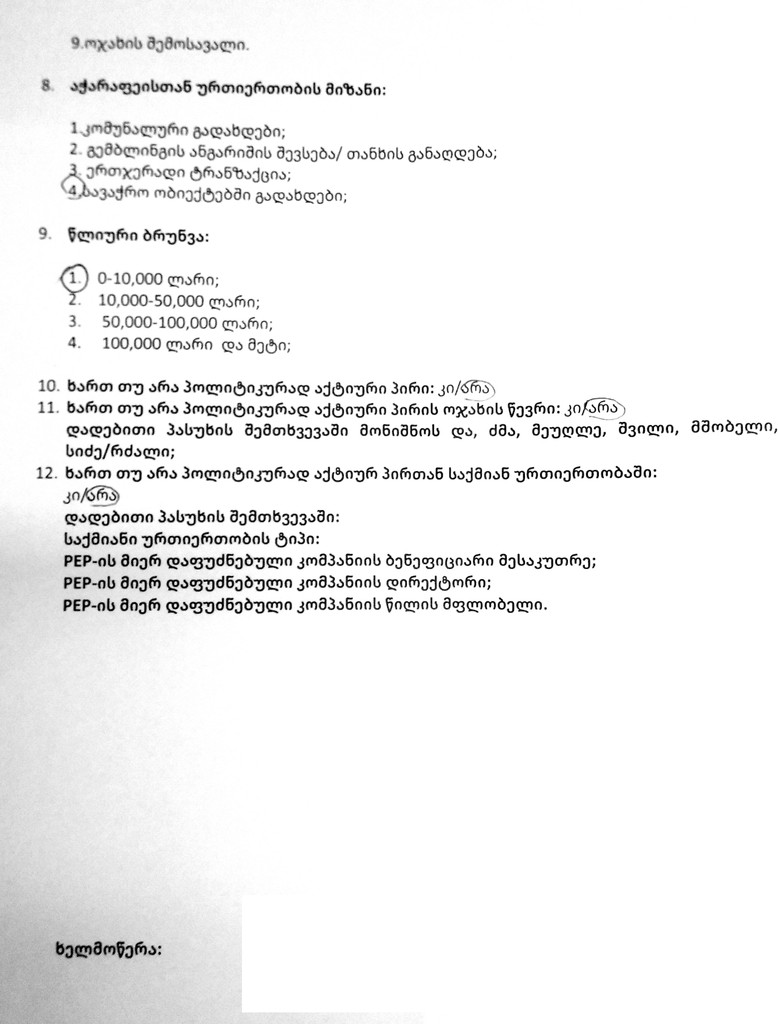 9.ოჯახის შემოსავალი.
8. აჭარაფეისთან ურთიერთობის მიზანი:
1.კომუნალური გადახდები;
2. გემბლინგის ანგარიშის შევსება/ თანხის განაღდება;
3. ერთჯერადი ტრანზაქცია;
4.სავაჭრო ობიექტებში გადახდები;
9. წლიური ბრუნვა:
1. 0-10,000 ლარი;
2. 10,000-50,000 ლარი;
3. 50,000-100,000 ლარი;
4. 100,000 ლარი და მეტი;
10. ხართ თუ არა პოლიტიკურად აქტიური პირი: კი/არა
11. ხართ თუ არა პოლიტიკურად აქტიური პირის ოჯახის წევრი: კი/არა
დადებითი პასუხის შემთხვევაში მონიშნოს და, ძმა, მეუღლე, შვილი, მშობელი,
სიძე/რძალი;
12. ხართ თუ არა პოლიტიკურად აქტიურ პირთან საქმიან ურთიერთობაში:
კი/არა
დადებითი პასუხის შემთხვევაში:
საქმიანი ურთიერთობის ტიპი:
PEP-ის მიერ დაფუძნებული კომპანიის ბენეფიციარი მესაკუთრე;
PEP-ის მიერ დაფუძნებული კომპანიის დირექტორი;
PEP-ის მიერ დაფუძნებული კომპანიის წილის მფლობელი.
ხელმოწერა: